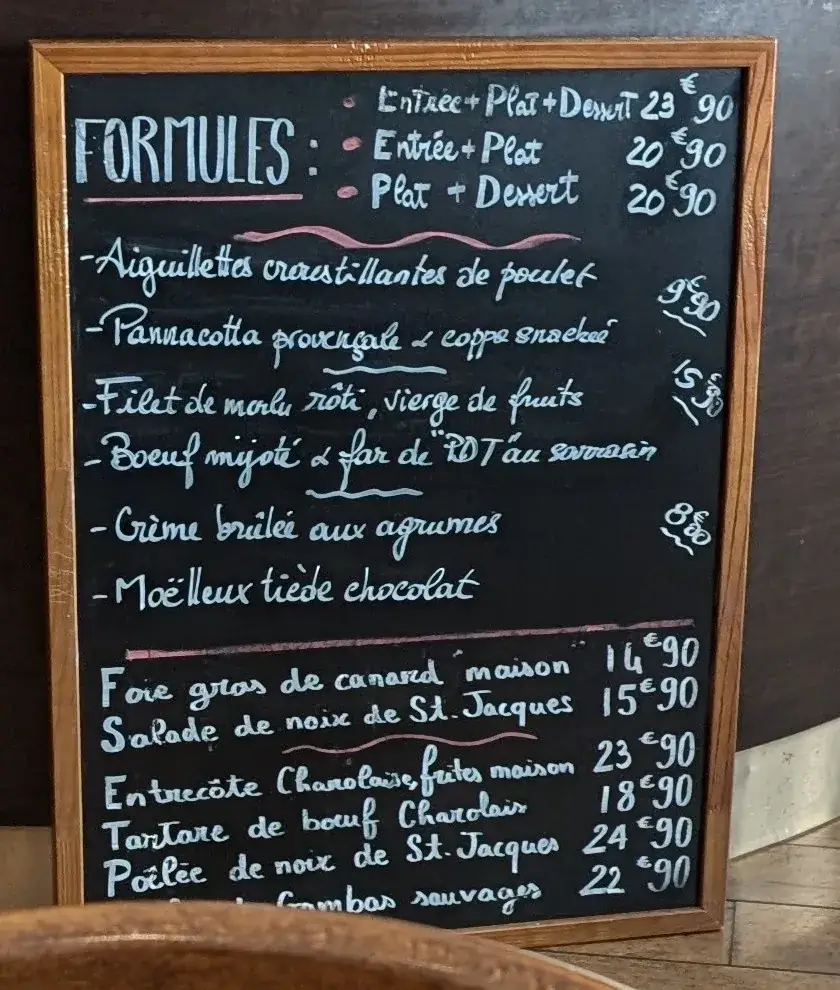 Entrée + Plat + Dessert 23€90
FORMULES : • Entrée + Plat 20€90
• Plat + Dessert 20€90
- Aiguillettes croustillantes de poulet 9€90
- Pannacotta provençale & coppa snackée
- Filet de morlu rôti, vierge de fruits 15€90
- Boeuf mijoté & far de "PDT" au sarrasin
- Crème brûlée aux agrumes 8€00
- Moëlleux tiède chocolat
Foie gras de canard "maison" 14€90
Salade de noix de St. Jacques 15€90
Entrecôte Charolaise, frites maison 23€90
Tartare de bœuf Charolais 18€90
Poêlée de noix de St. Jacques 24€90
Gambas sauvages 22€90